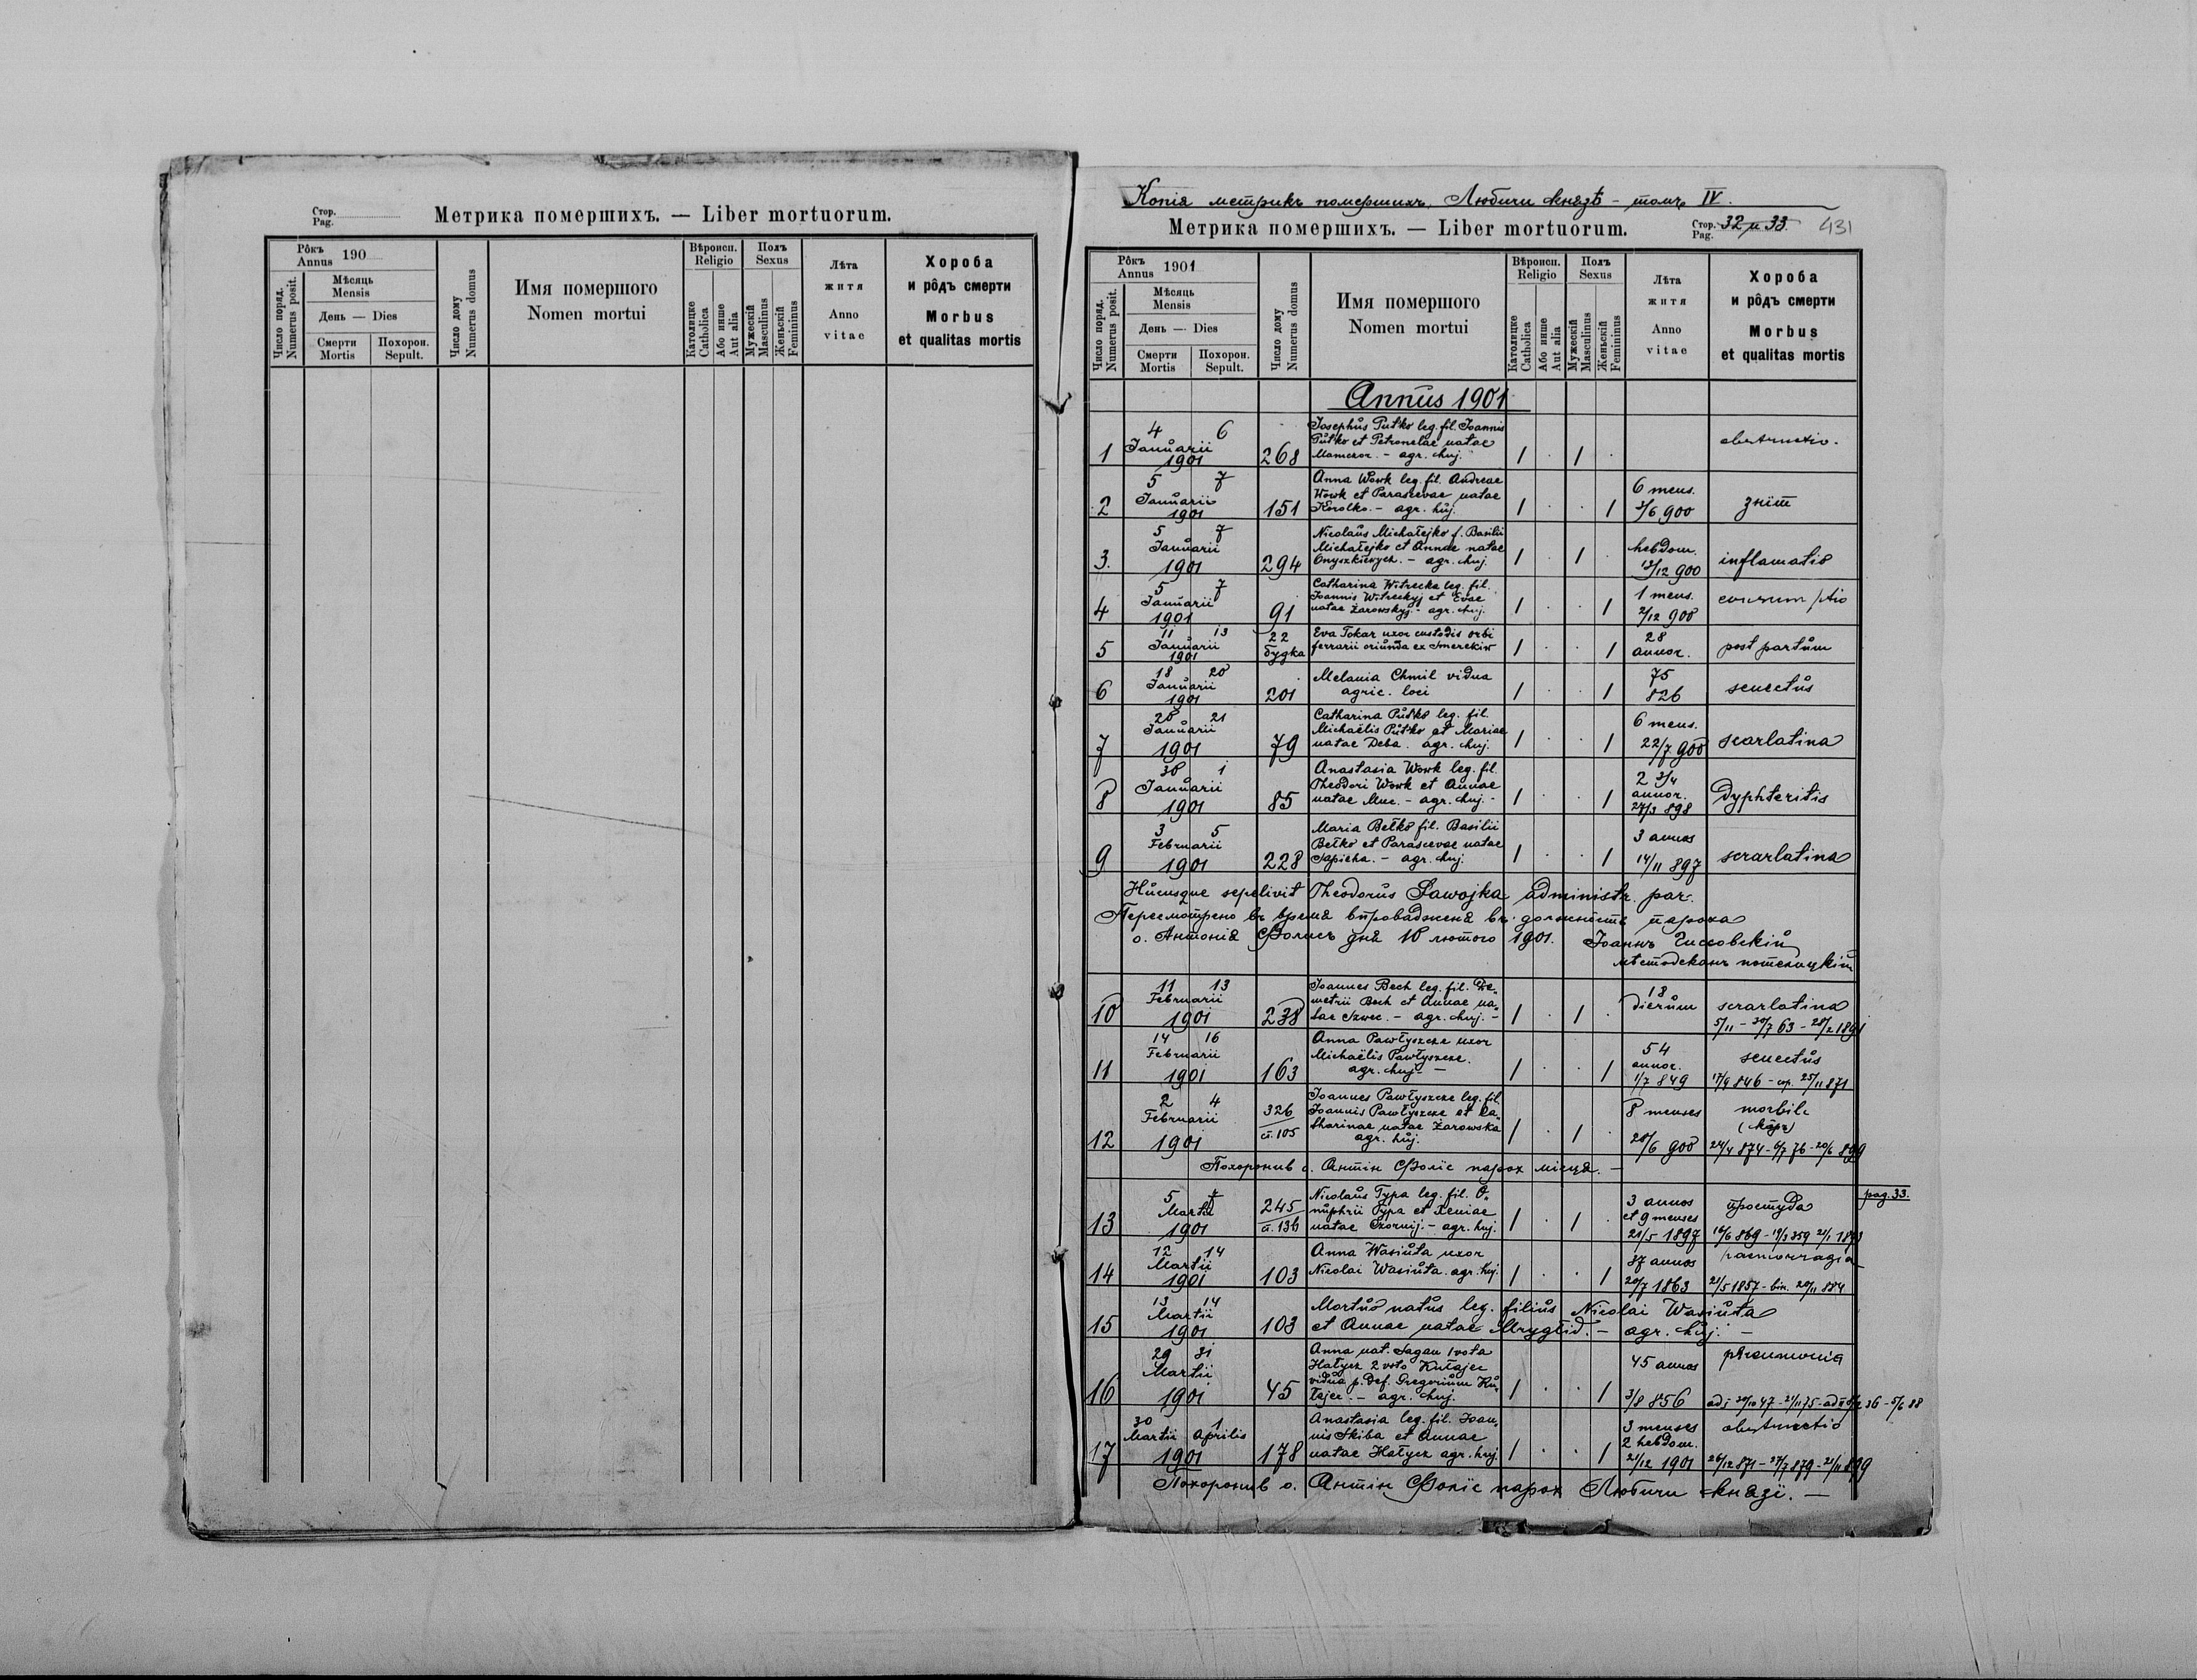 Стор.
Pag.
Метрика помершихъ. — Liber mortuorum.
Рôкъ
Annus 190
Число поряд.
Numerus posit.
Мѣсяць
Mensis
День — Dies
Смерти
Mortis
Похорон.
Sepult.
Число дому
Numerus domus
Имя помершого
Nomen mortui
Вѣроисп.
Religio
Католицке
Catholica
Або инше
Aut alia
Полъ
Sexus
Мужескій
Masculinus
Женьскій
Femininus
Лѣта
житя
Anno
vitae
Хороба
и рôдъ смерти
Morbus
et qualitas mortis
Копія метрикъ помершихъ, Любичи князѣ - томъ IV.
Метрика помершихъ. — Liber mortuorum.
Стор.
Pag. 32 и 33.
431
Рôкъ
Annus 1901
Число поряд.
Numerus posit.
Мѣсяць
Mensis
День — Dies
Смерти
Mortis
Похорон.
Sepult.
Число дому
Numerus domus
Имя помершого
Nomen mortui
Вѣроисп.
Religio
Католицке
Catholica
Або инше
Aut alia
Полъ
Sexus
Мужескій
Masculinus
Женьскій
Femininus
Лѣта
житя
Anno
vitae
Хороба
и рôдъ смерти
Morbus
et qualitas mortis
Annus 1901
1 4 6 Januarii 1901 268
Josephus Putko leg. fil. Joannis
Putko et Petronelae natae
agr. huj. 1 1
obstructio.
2 5 7 Januarii 1901 151
Anna Wowk leg. fil. Andreae
Wowk et Parascevae natae
Korolko. - agr. huj. 1 1
6 mens.
/6 900
3. 5 7 Januarii 1901 294
Nicolaus Michałejko f. Basilii
Michałejko et Annae natae
Onyszkiewych. - agr. huj. 1 1
hebdom.
/12 900
inflamatio
4 5 7 Januarii 1901 91
Catharina Witrecka leg. fil.
Joannis Witreckyj et Evae
natae Żarowskyj. - agr. huj. 1 1
1 mens.
2/12 900
consumptio
5 11 13 Januarii 1901 22 будка
Eva Tokar uxor custodis orbi
ferrarii oriunda ex Smerekiw 1 1
28
annor.
post partum
6 18 20 Januarii 1901 201
Melania Chmil vidua
agric. loci 1 1
75
826
senectus
7 20 21 Januarii 1901 79
Catharina Putko leg. fil.
Michaëlis Putko et Mariae
natae Deba. agr. huj. 1 1
6 mens.
22/7 900
scarlatina
8 30 1 Januarii 1901 85
Anastasia Wowk leg. fil.
Theodori Wowk et Annae
natae - agr. huj. - 1 1
2 3/4
annor.
27/3 898
Dyphteritis
9 3 5 Februarii 1901 228
Maria Bełko fil. Basilii
Bełko et Parascevae natae
Sapieha. - agr. huj. 1 1
3 annos
14/11 897
scrarlatina
Hucusque sepelivit Theodorus Sawojka administr. par.
Пересмотрено въ время впровадженя въ должность пароха
о. Антонія Фолисъ дня 10 лютого 1901. Іоаннъ
мѣстодеканъ потелицкій
10 11 13 Februarii 1901 238
Joannes Bech leg. fil. De„
metrii Bech et Annae na„
tae Szwec. - agr. huj. - 1 1
18
dierum
scrarlatina
5/11 - 30/7 63 - 28/2 1891
11 14 16 Februarii 1901 163
Anna Pawłyszcze uxor
Michaëlis Pawłyszcze.
agr. huj. - 1 1
54
annor.
1/7 849
senectus
17/9 846 - cop. 25/11 871
12 2 4 Februarii 1901 326
Joannes Pawłyszcze leg. fil.
Joannis Pawłyszcze et Ca„
tharinae natae Żarowska
agr. huj. 1 1
8 menses
20/6 900
morbili
(кôрь)
24/4 874 - 6/7 76 - 20/6 899
Похоронив о. Антін Фоліс парох місця. —
pag. 33.
13 5 7 Martii 1901 245
Nicolaus Typa leg. fil. O„
nuphrii Typa et Xeniae
natae Czornij. - agr. huj. 1 1
3 annos
et 9 menses
21/5 1897
простуда
14 12 14 Martii 1901 103
Anna Wasiuta uxor
Nicolai Wasiuta. agr. huj. 1 1
37 annos
20/7 1863
haemorragia
21/5 1857 - bin. 20/11 884
15 13 14 Martii 1901 103
Mortuo natus leg. filius Nicolai Wasiuta
et Annae natae Mrygłid. - agr. huj. -
16 29 31 Martii 1901 45
Anna nat. Sagan 1 voto
Hałycz 2 voto Kułajec
vidua p. def. Gregorium Ku„
łajec. - agr. huj. 1 1
45 annos
3/8 856
pneumonia
17 30 Martii 1 Aprilis 1901 178
Anastasia leg. fil. Joan„
nis Skiba et Annae
natae Hałycz agr. huj. 1 1
3 menses
2 hebdom.
21/12 1901
obstructio
26/12 871 - 27/7 879 - 21/11 899
Похоронив о. Антін Фоліс парох Любичи князі. —